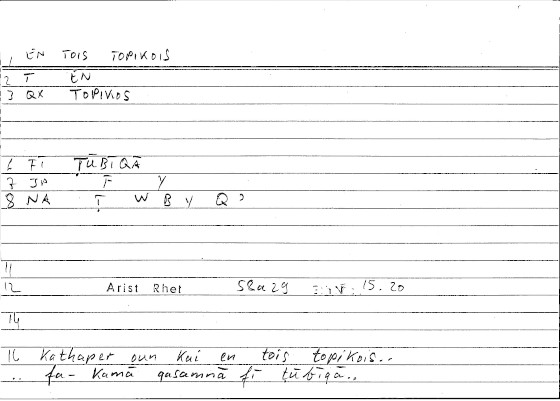 1 EN TOIS TOPIKOIS
2 T EN
3 QX TOPIKOS
6 FĪ ṬŪBĪQĀ
7 JP F Y
8 NA Ṭ W B Y Q ʾ
11
12 Arist Rhet 58a29 15.20
14
16 kathaper oun kai en tois topikois..
.. fa-kamā qasamnā fī ṭūbīqā..